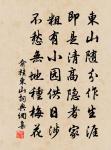 東山隨分作生涯
即是清高隱者家
粗有小園供日涉
不愁無地種梅花
俞桂東山詞典網集